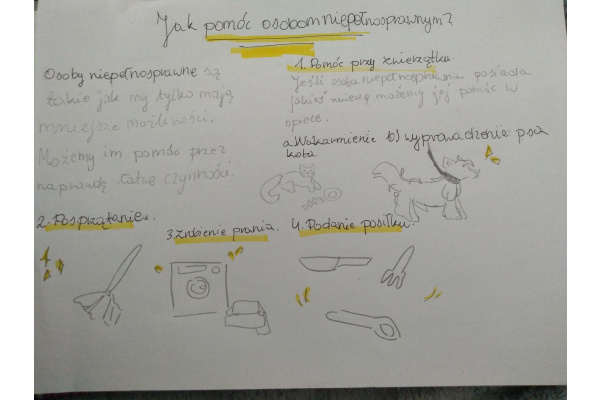 Jak pomóc osobom niepełnosprawnym?
Osoby niepełnosprawne są
takie jak my tylko mają
mniejsze możliwości.
Możemy im pomóc przez
naprawdę łatwe czynności.
1. Pomóc przy zwierzątku
Jeśli osoba niepełnosprawna posiada
jakieś zwierzę możemy jej pomóc w
opiece.
a) Nakarmienie b) wyprowadzenie psa
kota.
2. Posprzątanie.
3. Zrobienie prania.
4. Podanie posiłku.